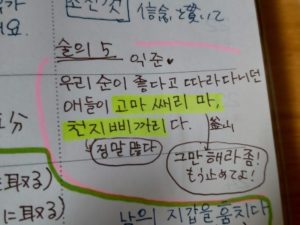 초신것
信念を貫いて
슬의 5
익준♥
우리 순이 좋다고 따라다니던
애들이 고마 쌔리 마,
천지삐까리다.
釜山
정말 많다
그만 해라 좀!
もう止めてよ!
분
に耳叙る)
に耳叙る)
남의 지갑을 훔치다